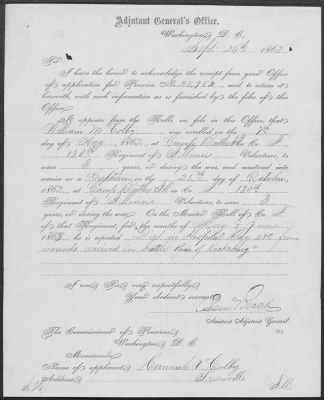 Adjutant General's Office,
Washington, D. C.
Sept 26th, 186
Sir:
I have the honor to acknowledge the receipt from your Office
of application for Pension No. and to return it
herewith, with such information as is furnished by the files of this
Office.
It appears from the Rolls on file in this Office, that
William M. Colby was enrolled on the 7th
day of Aug, 1862, at Camp in Co. F
120th Regiment of Illinois Volunteers, to
serve 3 years, or during the war, and mustered into
service as a Captain on the 28th day of October,
1862, at Camp Butler Ill, in Co. F 120th
Regiment of Illinois Volunteers, to serve 3
years, or during the war. On the Muster Roll of Co. F
of that Regiment, for the months of May & June,
1863, he is reported May 23d from
wounds received in battle Rear of Vicksburg
I am, Sir, very respectfully,
Your obedient servant,
Assistant Adjutant General.
The Commissioner of Pensions,
Washington, D. C.
Memoranda:
Name of applicant, Hannah V. Colby
Address,
Ills.